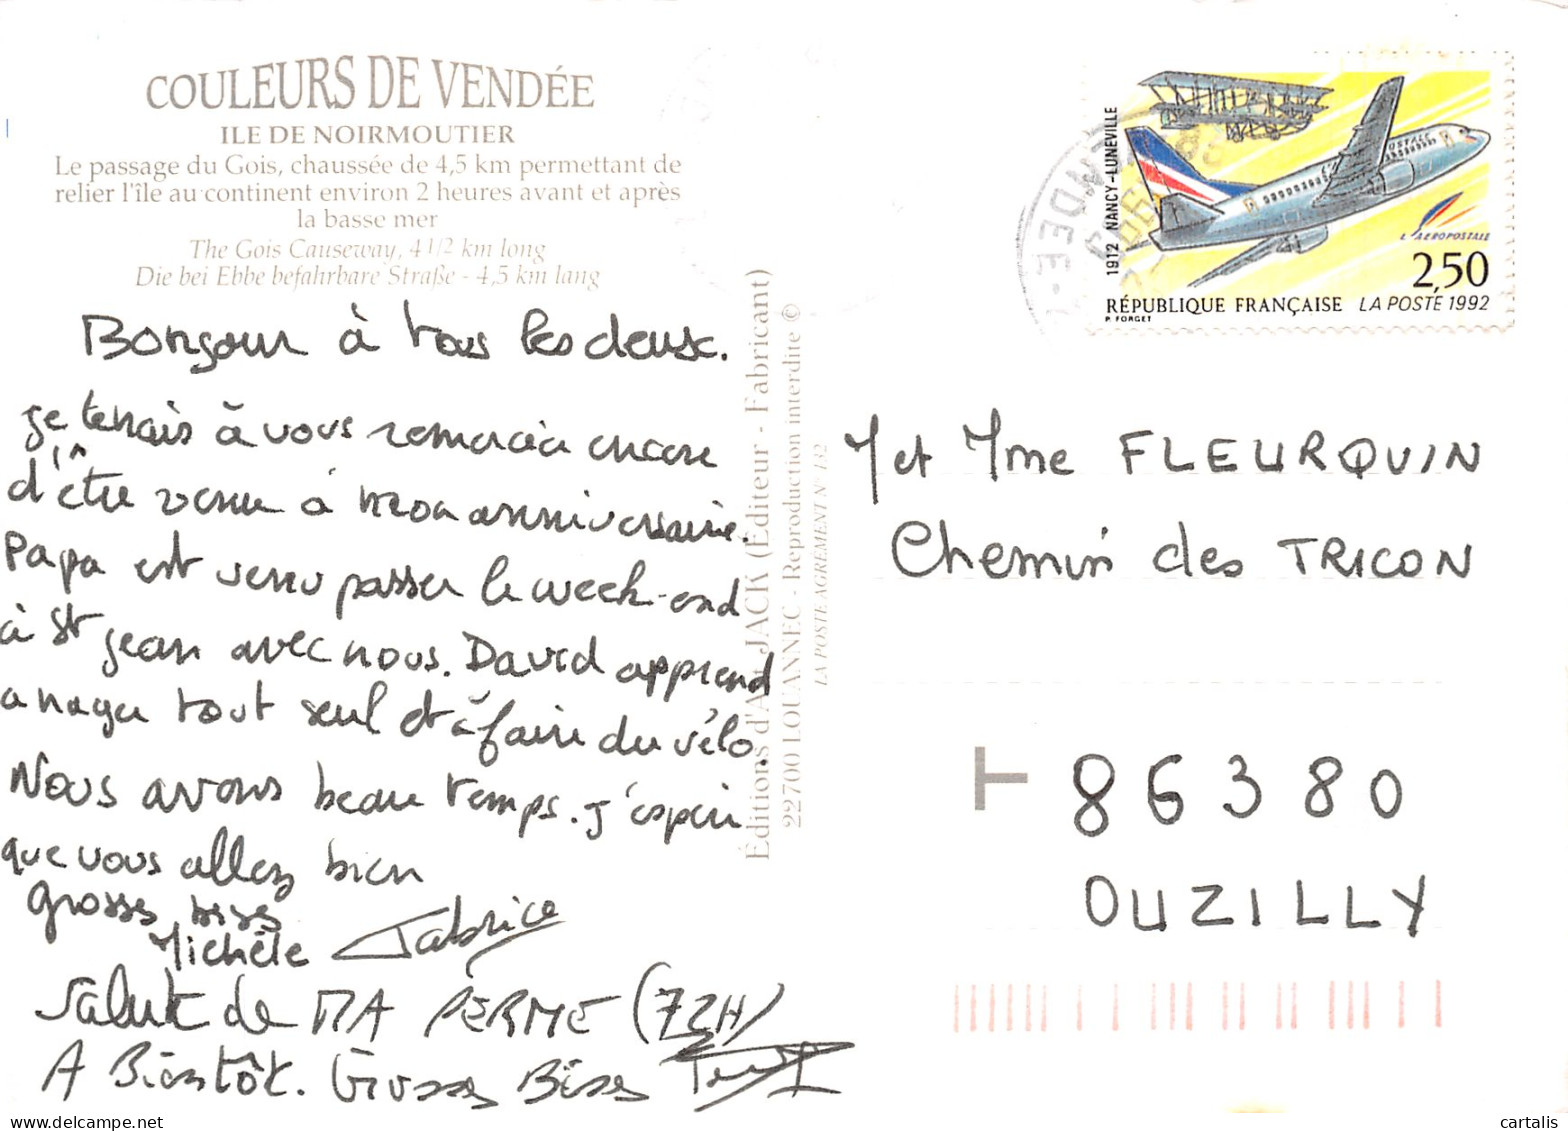 COULEURS DE VENDÉE
ILE DE NOIRMOUTIER
Le passage du Gois, chaussée de 4,5 km permettant de
relier l'île au continent environ 2 heures avant et après
la basse mer
The Gois Causeway, 4 1/2 km long
Die bei Ebbe befahrbare Straße - 4,5 km lang
Bonjour à tous les deux.
je tenais à vous remercier encore
d'être venu à mon anniversaire.
Papa est venu passer le week-end
à St Jean avec nous. David apprend
a nager tout seul et à faire du vélo.
Nous avons beau temps. j'espère
que vous allez bien
grosses bises
Michèle Fabrice
Salut de MA PERME (72H)
A Bientôt. Grosses Bises
Éditions d'Art JACK (Éditeur - Fabricant)
22700 LOUANNEC - Reproduction interdite ©
LA POSTE AGREMENT N° 132
VENDEE
1912 NANCY-LUNEVILLE
L'AEROPOSTALE
2,50
RÉPUBLIQUE FRANÇAISE LA POSTE 1992
P. FORGET
M et Mme FLEURQUIN
Chemin des TRICON
T 86380
OUZILLY
cartalis